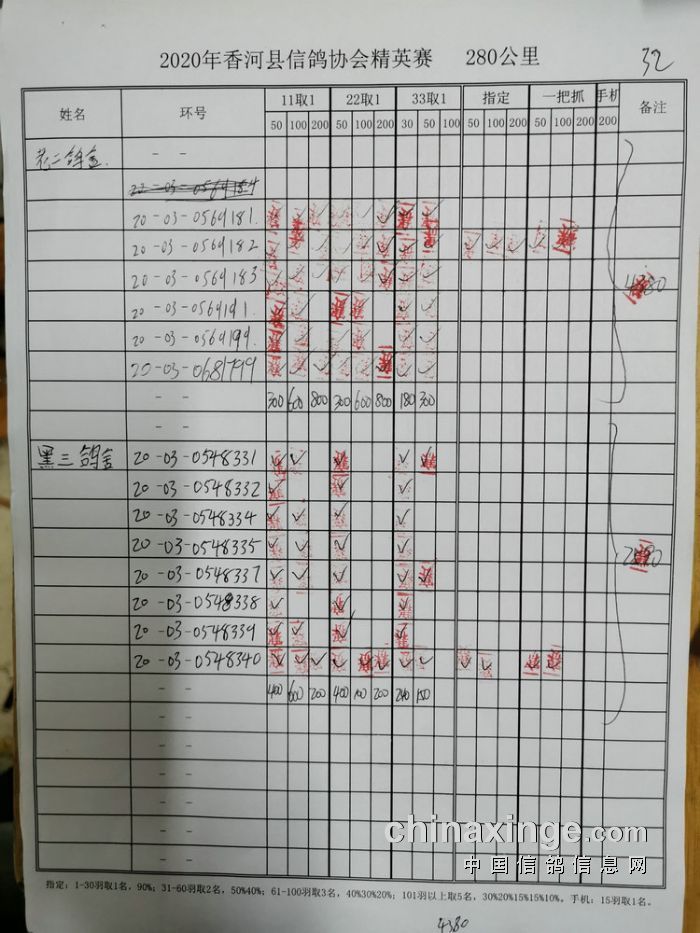 2020年香河县信鸽协会精英赛 280公里
32
姓名 环号 11取1 22取1 33取1 指定 一把抓 手机 备注
50 100 200 50 100 200 30 50 100 50 100 200 50 100 200 200
二鸽舍 - -
22-03-0564184
20-03-0564181
20-03-0564182
20-03-0564183
20-03-0564191
20-03-0564199
20-03-0681799
- - 300 600 800 300 600 800 180 300
- -
黑三鸽舍 20-03-0548331
20-03-0548332
20-03-0548334
20-03-0548335
20-03-0548337
20-03-0548338
20-03-0548339
20-03-0548340
- - 400 600 200 400 100 200 240 150
- -
- -
- -
- -
- -
- -
chinaxinge.com
中国信鸽信息网
指定：1-30羽取1名，90%；31-60羽取2名，50%40%；61-100羽取3名，40%30%20%；101羽以上取5名，30%20%15%15%10%。手机：15羽取1名。
4380